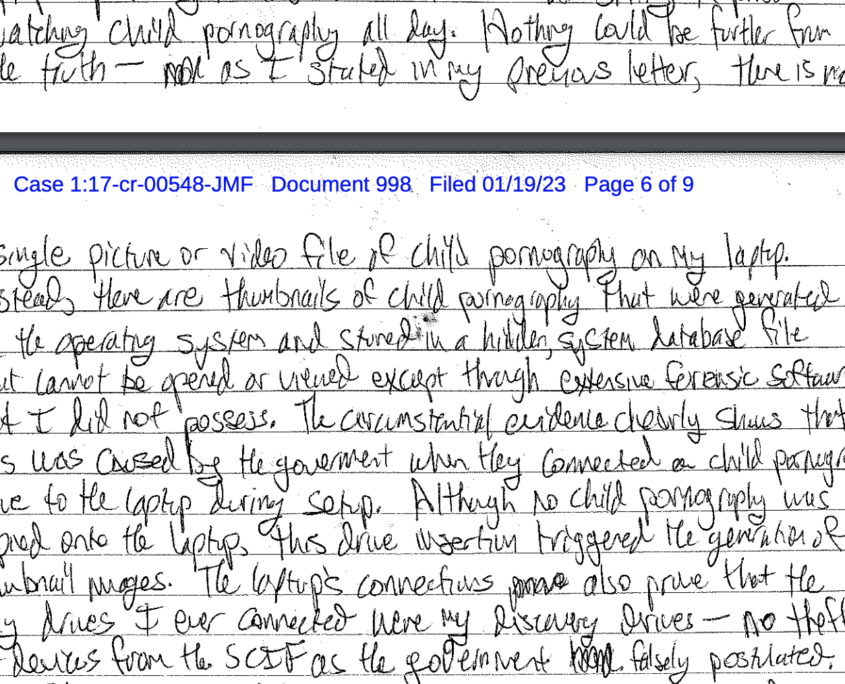 watching child pornography all day. Nothing could be further from
truth — as I stated in my previous letter, there is
Case 1:17-cr-00548-JMF Document 998 Filed 01/19/23 Page 6 of 9
single picture or video file of child pornography on my laptop.
stead, there are thumbnails of child pornography that were generated
the operating system and stored in a hidden, system database file
cannot be opened or viewed except through extensive forensic softwar
I did not possess. The circumstantial evidence clearly shows that
was caused by the goverment when they connected a child pornogr
ve to the laptop during setup. Although no child pornography was
onto the laptop, this drive insertion triggered the generation of
umbnail images. The laptop's connections also prove that the
y drives I ever connected were my discovery drives — no theft
devices from the SCIF as the government falsely postulated.